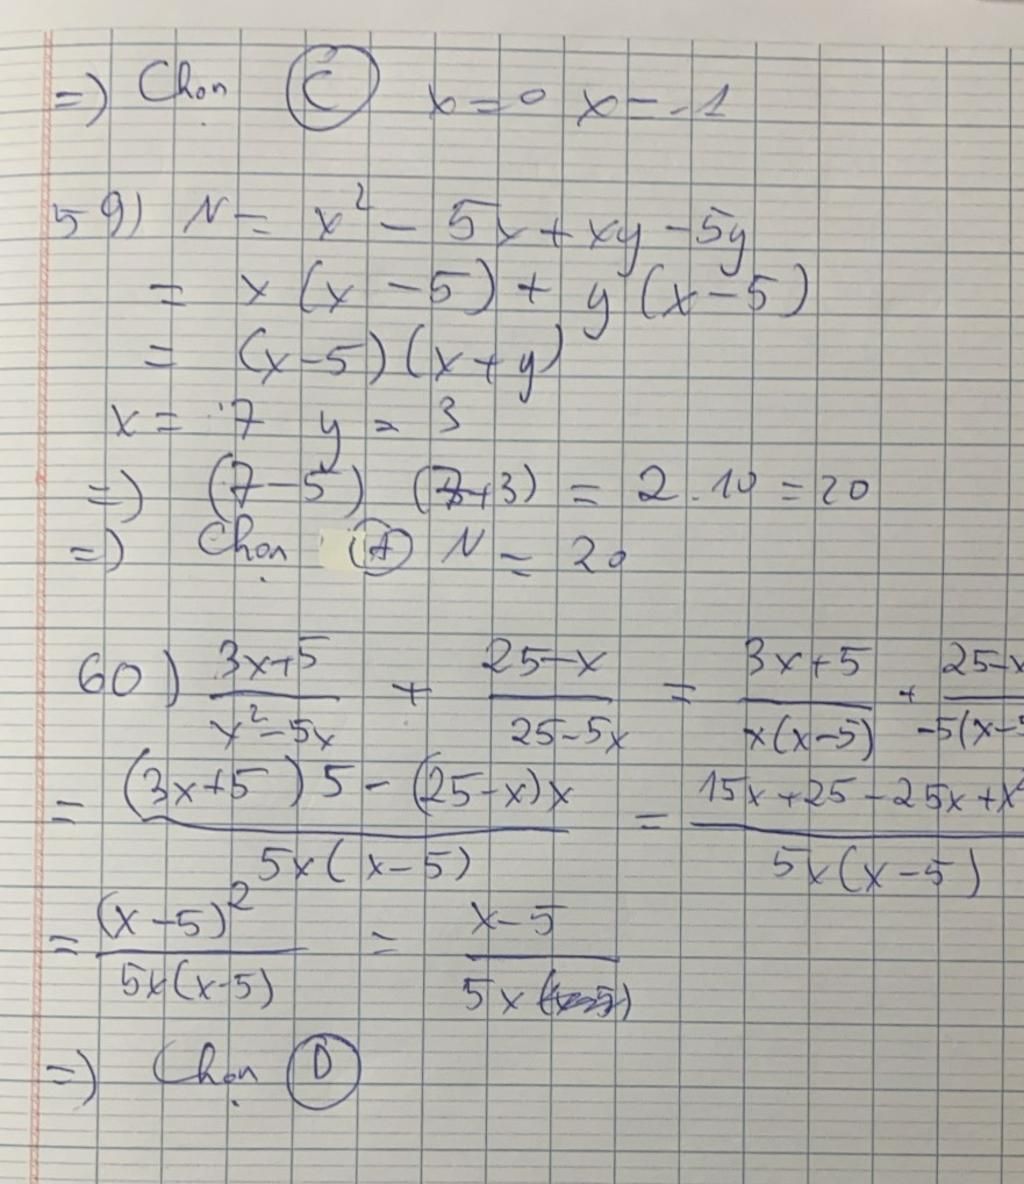 =) Chọn Ⓒ x=0 x=-1
59) N= x² - 5x + xy - 5y
= x (x - 5) + y (x - 5)
= (x-5) (x+y)
x = 7 y = 3
=) (7-5) (7+3) = 2 . 10 = 20
=) Chọn Ⓐ N = 20
60) (3x+5)/(x²-5x) + (25-x)/(25-5x) = (3x+5)/(x(x-5)) + (25-x)/(-5(x-5
= ((3x+5)5 - (25-x)x)/(5x(x-5)) = (15x+25-25x+x²)/(5x(x-5))
= (x-5)²/(5x(x-5)) = (x-5)/(5x)
=) Chọn Ⓓ